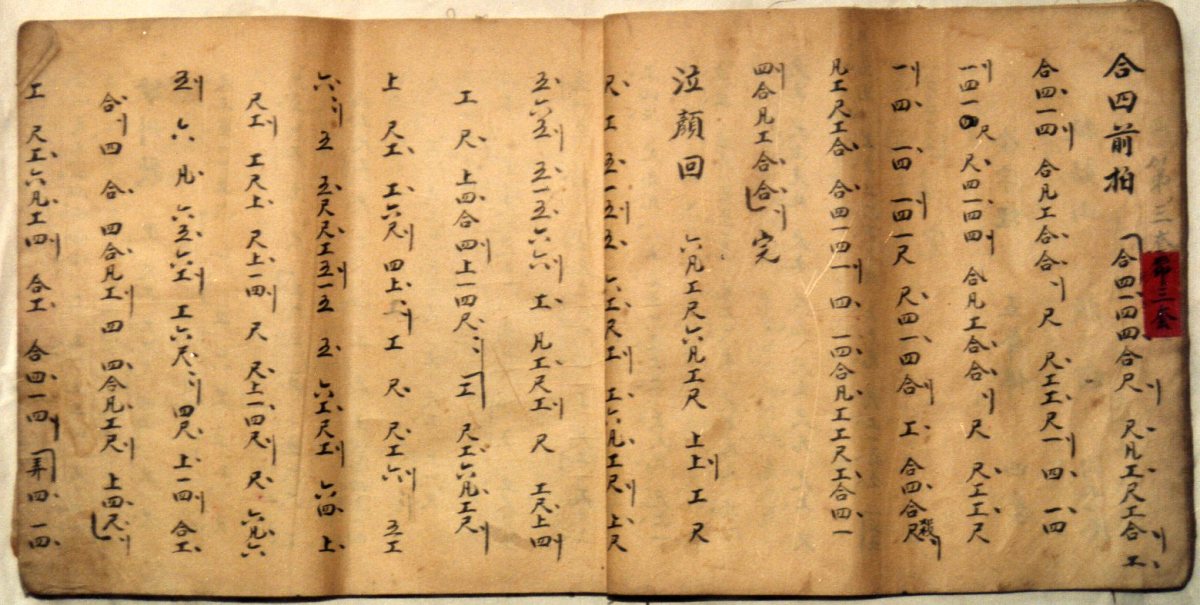 合四前拍 合四一四四合尺 尺凡工尺工合工
第三套
合四一四 合凡工合合 尺 尺工工尺一 四 一四
一四一四尺 尺四一四四 合凡工合合 尺 尺工工尺
一 四 一四 一四一尺 尺四一四合 工 合四合尺
凡工尺工合 合四一四一 四 一四合凡工工尺工合四一
四合凡工合合 完
泣顏回 六凡工尺六凡工尺 上上 工 尺
尺 工 五一五五 六工尺工 工六凡工尺 上尺
五六五 五一五六六 工 凡工尺工 尺 工尺上四
工 尺 上四合四上一四尺 工 尺工六凡工尺
上 尺工 工六尺 四上 工 尺 尺工六 五工
六 五 五尺尺工五一五 五 六工尺工 六四 上
尺工 工尺上 尺上一四 尺 尺上一四尺 尺 六凡六
五 六 凡 六五六工 工六尺 四尺 上一四 合工
合 四 合 四合凡工 四 四合凡工尺 上四尺
工 尺工六凡工四 合工 合四一四 弄四 一四